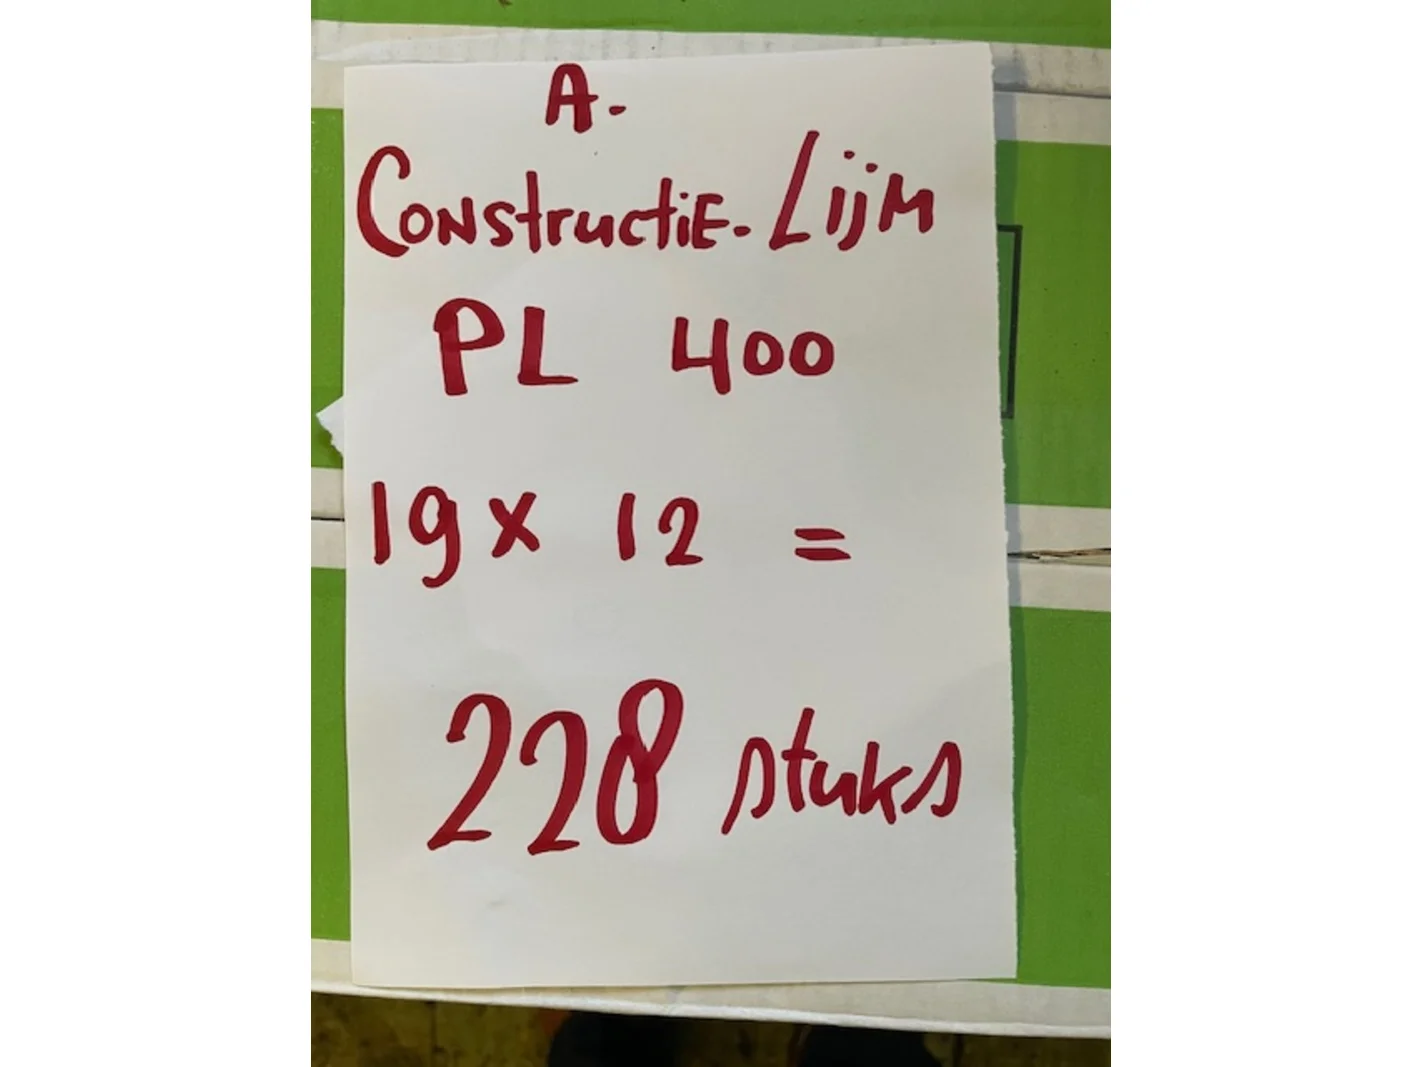 A.
Constructie-Lijm
PL 400
19 x 12 =
228 stuks